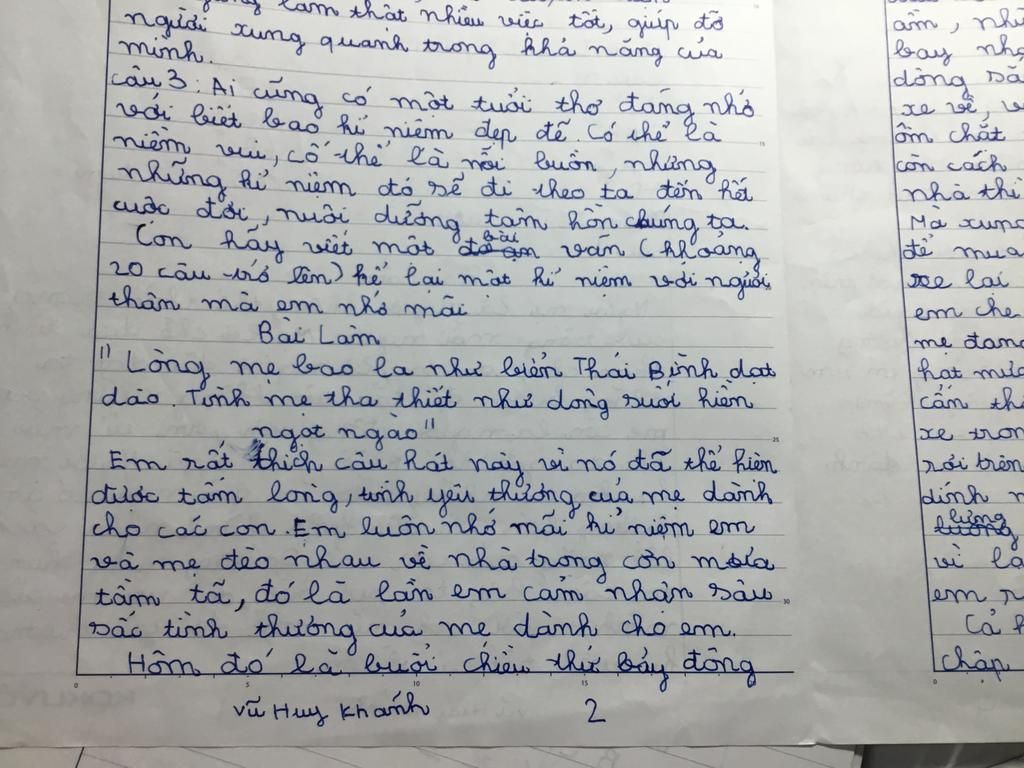 làm thật nhiều việc tốt, giúp đỡ
người xung quanh trong khả năng của
mình.
Câu 3: Ai cũng có một tuổi thơ đáng nhớ
với biết bao kỉ niệm đẹp đẽ có thể là
niềm vui, có thể là nỗi buồn, nhưng
những kỉ niệm đó sẽ đi theo ta đến hết
cuộc đời, nuôi dưỡng tâm hồn chúng ta.
Con hãy viết một bài văn (khoảng
20 câu trở lên) kể lại một kỉ niệm với người
thân mà em nhớ mãi
Bài Làm
"Lòng mẹ bao la như biển Thái Bình dạt
dào Tình mẹ tha thiết như dòng suối hiền
ngọt ngào"
Em rất thích câu hát này vì nó đã thể hiện
được tấm lòng, tình yêu thương của mẹ dành
cho các con. Em luôn nhớ mãi kỉ niệm em
và mẹ đèo nhau về nhà trong cơn mưa
tầm tã, đó là lần em cảm nhận sâu
sắc tình thương của mẹ dành cho em.
Hôm đó là buổi chiều thứ bảy đông
Vũ Huy Khánh 2
ầm, nh
bay nh
dòng
xe về, v
ồn chất
còn cách
nhà thì
Mà xung
để mua
xe lai
em che
mẹ đang
hạt mưa
cẩn th
xe tron
rơi trên
dính
lưng
vì là
em r
Cả
chập